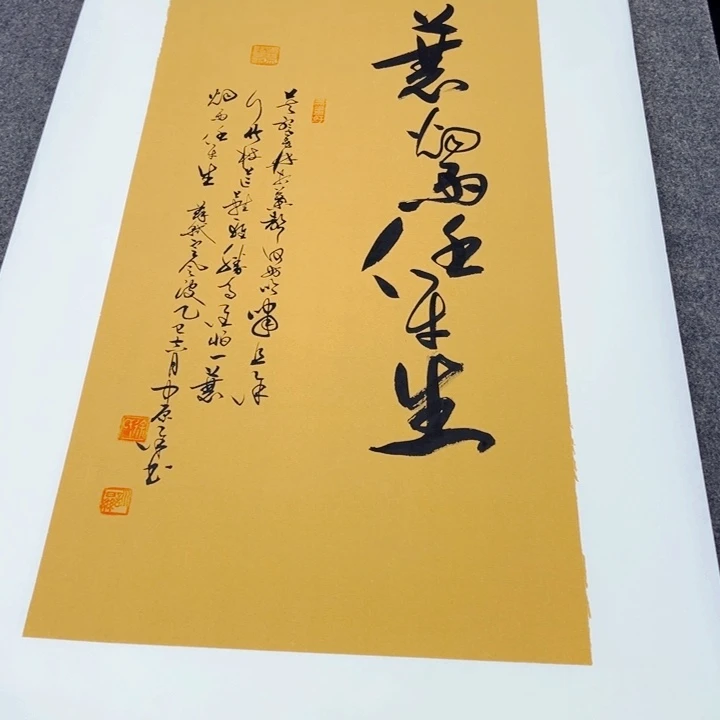 蓑烟雨任平生
莫听穿林打叶声何妨吟啸且徐
行竹杖芒鞋轻胜马谁怕一蓑
烟雨任平生 苏轼定风波乙巳六月中原书